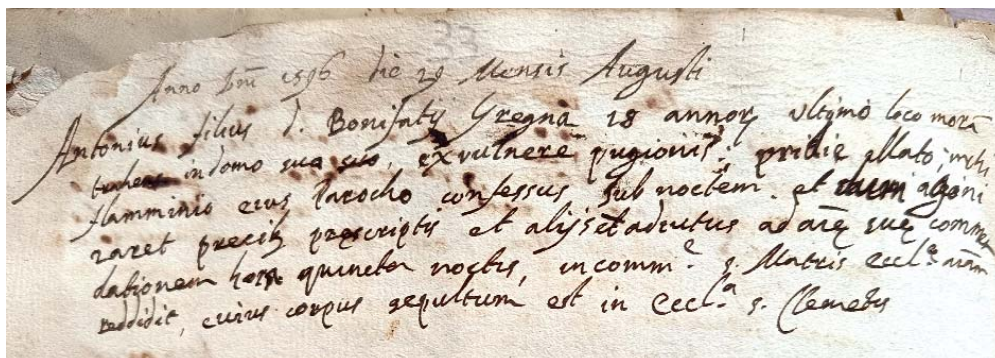 33
Anno Dni 1596 die 29 Mensis Augusti
Antonius filius d. Bonifatij Gregna 28 annorũ ultimo loco morã
trahens in domo sua, ex vulnere pugionis, pridie illato, mihi
flamminio eius Parocho confessus sub noctem. et cum agoni
zaret precibus prescriptis et alijs et adiutus ad aĩę suę commen
dationem hora quincta noctis, in comm.e s. Matris eccl.ę aĩam
reddidit, cuius corpus sepultum est in eccl.a s. Clemetis